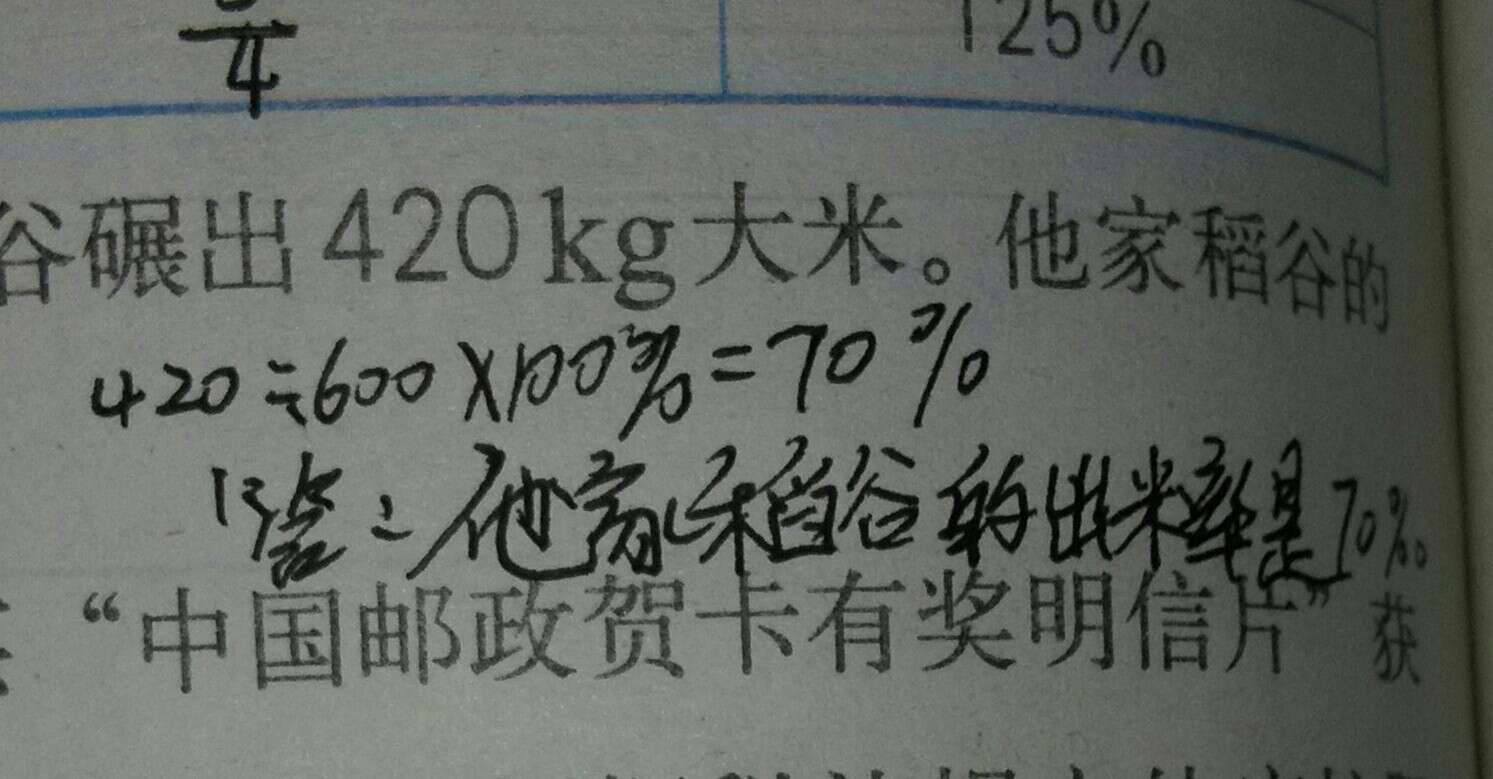 4 125%
谷碾出420kg大米。他家稻谷的
420÷600×100%=70%
答：他家稻谷的出米率是70%。
“中国邮政贺卡有奖明信片”获